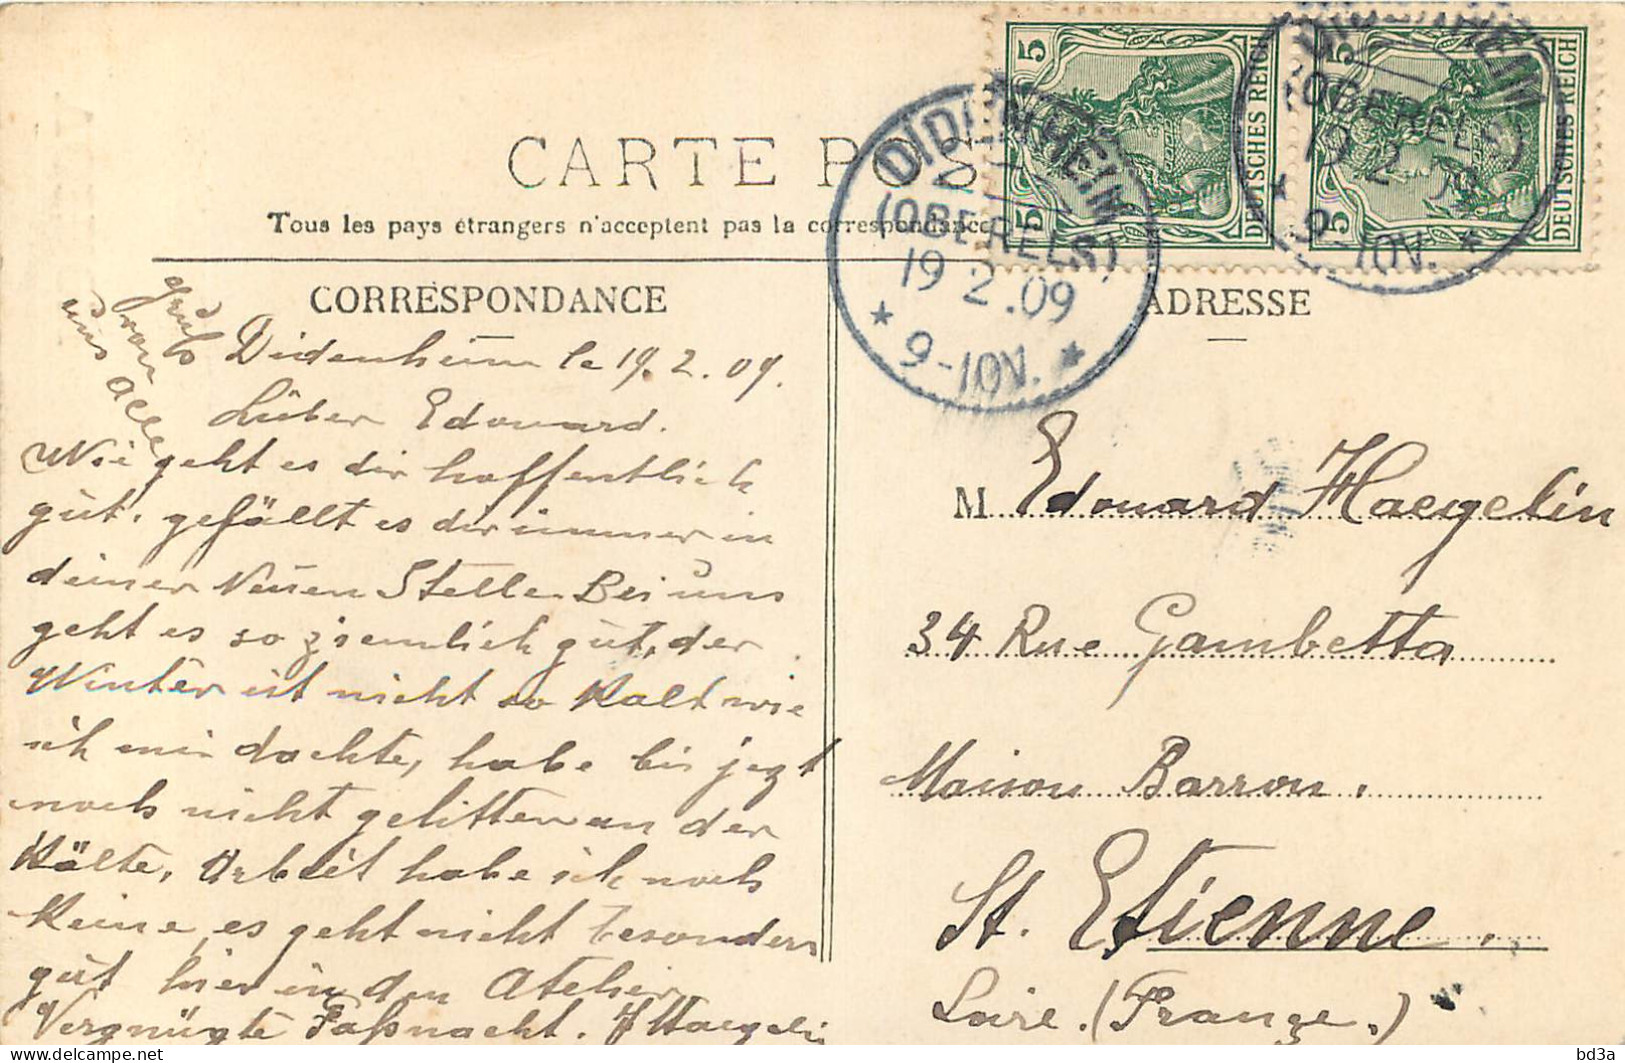 CARTE POS
Tous les pays étrangers n'acceptent pas la correspondance
CORRESPONDANCE
ADRESSE
5
5
DEUTSCHES REICH
5
5
DEUTSCHES REICH
DIDENHEIM
(OBERELS)
19 2 .09
9-10V.
DIDENHEIM
(OBERELS)
19 2 09
9-10V.
Didenheim le 19.2.09.
Lieber Edouard.
Wie geht es dir hoffentlich
gut, gefällt es dir immer in
deiner Neuen Stelle. Bei uns
geht es so ziemlich gut, der
Winter ist nicht so Kalt wie
ich mir dachte, habe bis jezt
noch nicht gelitten an der
Kälte, Arbeit habe ich noch
Keine, es geht nicht besonders
gut hier in den Atelier
Vergnügte Faßnacht. J Haegelin
Gruß
von
uns alle
M Edouard Haegelin
34 Rue Gambetta
Maison Barrou.
St. Etienne.
Loire. (France.)
bd3a